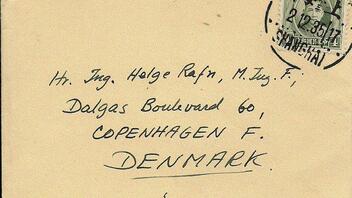 2.12.35.17
SHANGHAI
Hr. Ing. Helge Rafn, M. Ing. F.,
Dalgas Boulevard 60,
COPENHAGEN F.
DENMARK.